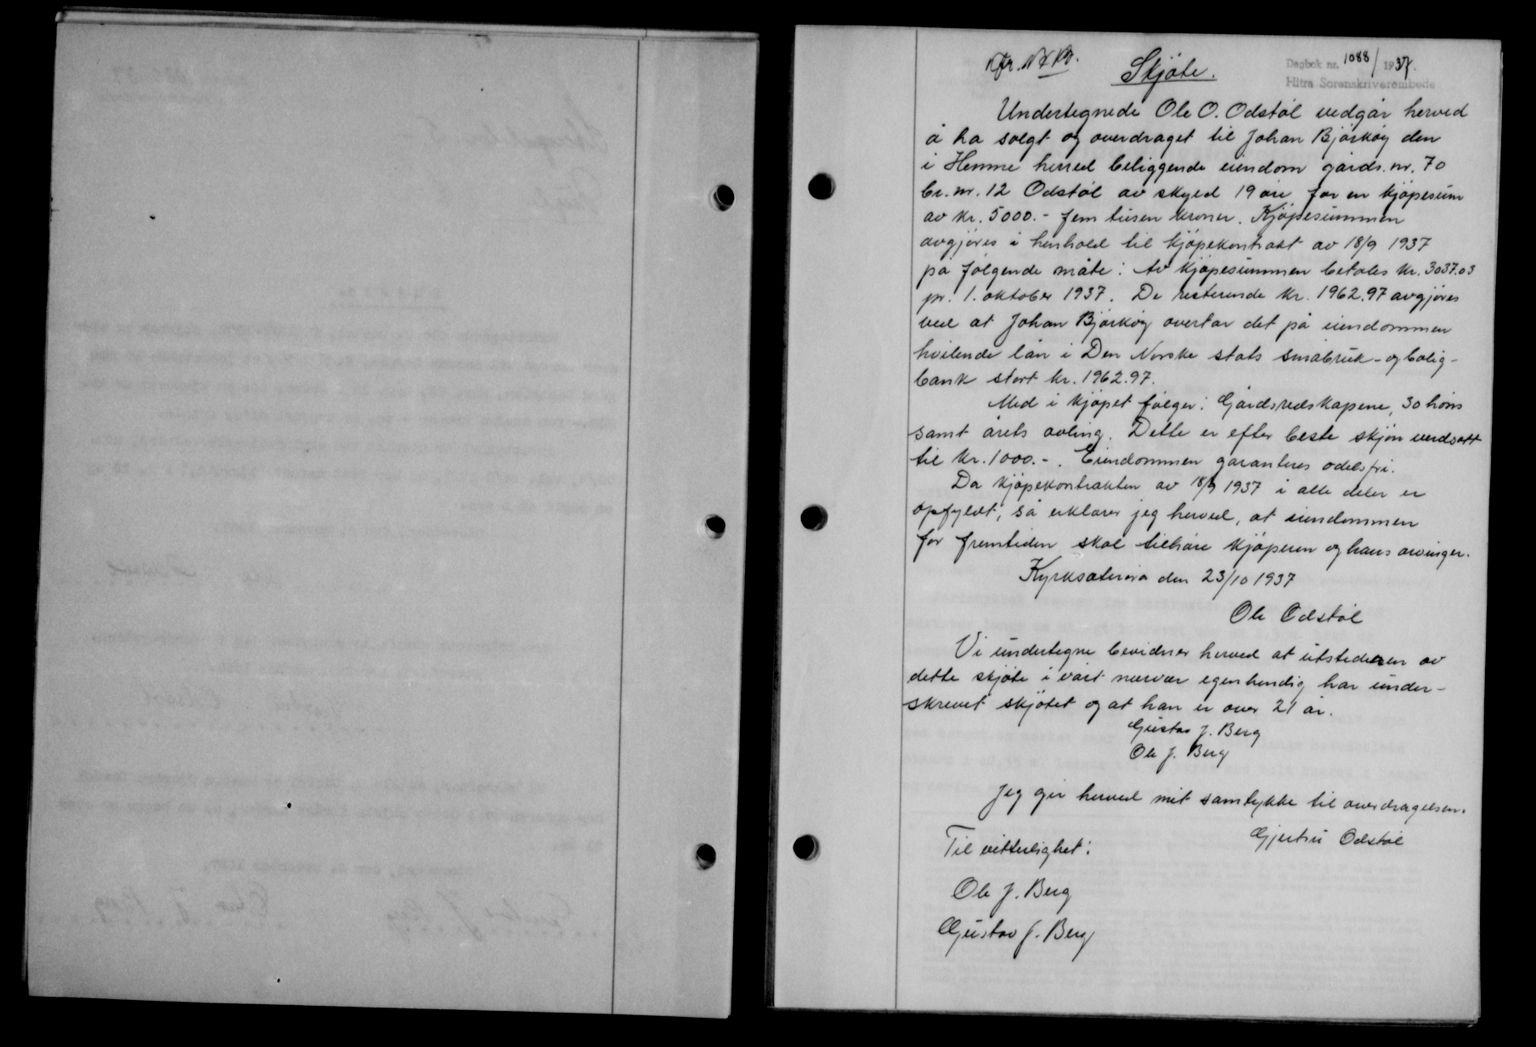 Dagbok nr. 1088/1937.
Hitra Sorenskriverembede
Skjøte.
Undertegnede Ole O. Odstøl vedgår herved
å ha solgt og overdraget til Johan Bjørkøy den
i Hemne herred beliggende eiendom gårds.nr. 70
br.nr. 12 Odstøl av skyld 19 øre for en kjøpesum
av kr. 5000.- fem tusen kroner. Kjøpesummen
avgjøres i henhold til kjøpekontrakt av 18/9 1937
på følgende måte: Av kjøpesummen betales kr. 3037.03
pr. 1. oktober 1937. De resterende kr. 1962.97 avgjøres
ved at Johan Bjørkøy overtar det på eiendommen
hvilende lån i Den Norske stats småbruk- og bolig-
bank stort kr. 1962.97.
Med i kjøpet følger: Gårdsredskapene, 30 høns
samt årets avling. Dette er efter beste skjøn verdsatt
til kr. 1000.-. Eiendommen garanteres odelsfri.
Da kjøpekontrakten av 18/9 1937 i alle deler er
opfyldt, så erklærer jeg herved, at eiendommen
for fremtiden skal tilhøre kjøperen og hans arvinger.
Kyrksæterøra den 23/10 1937
Ole Odstøl
Vi undertegne bevidner herved at utstederen av
dette skjøte i vårt nærvær egenhendig har under-
skrevet skjøtet og at han er over 21 år.
Gustav J. Berg
Ole J. Berg
Jeg gir herved mitt samtykke til overdragelsen.
Gjertru Odstøl
Til vitterlighet:
Ole J. Berg
Gustav J. Berg